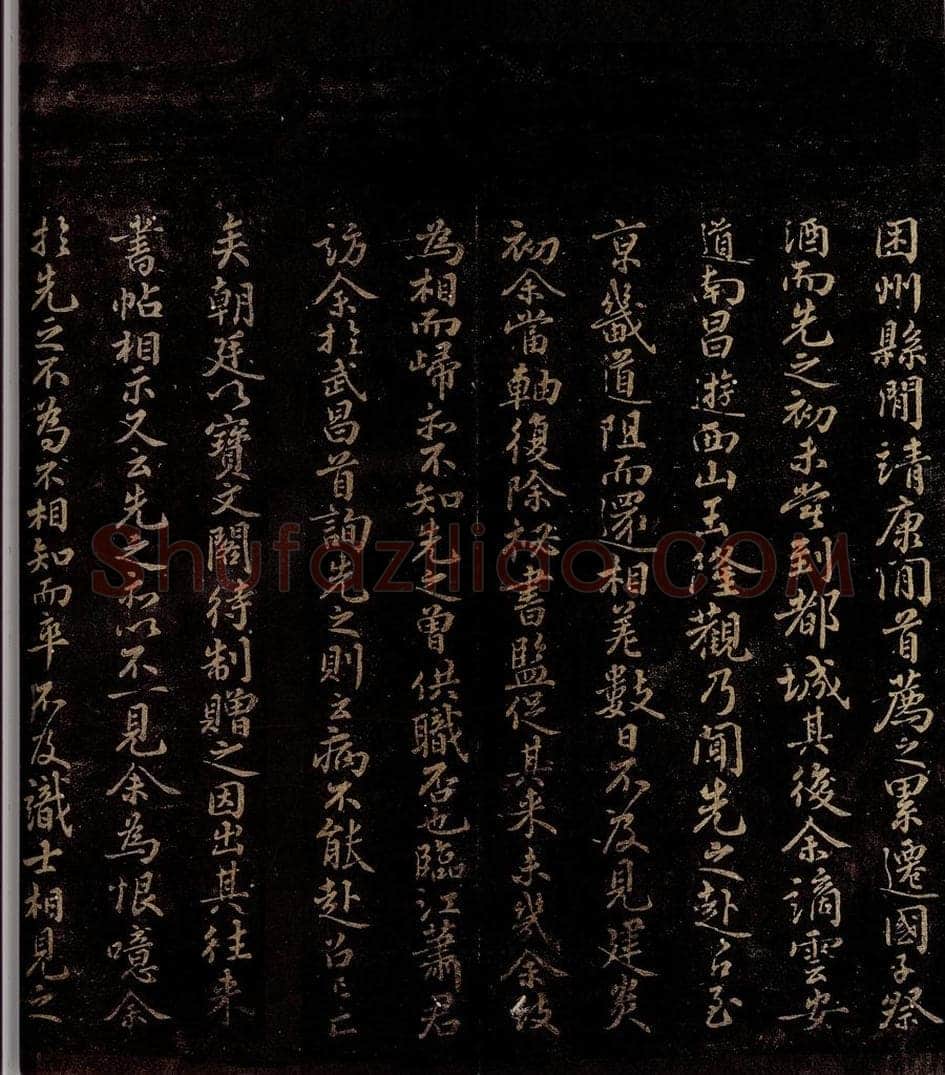 困州縣間靖康間首薦之累遷國子祭
酒而先之初未嘗到都城其後余謫雲安
道南昌遊西山玉隆觀乃聞先之赴召至
京畿道阻而還相差數日不及見建炎
初余當軸復除祕書監促其來未幾余
為相而歸亦不知先之曾供職否也臨江蕭君
訪余於武昌首詢先之則云病不能赴召已亡
矣朝廷以寶文閣待制贈之因出其往來
書帖相示又云先之亦以不一見余為恨噫余
於先之不為不相知而卒不及識士相見之
Shufaziliao.COM